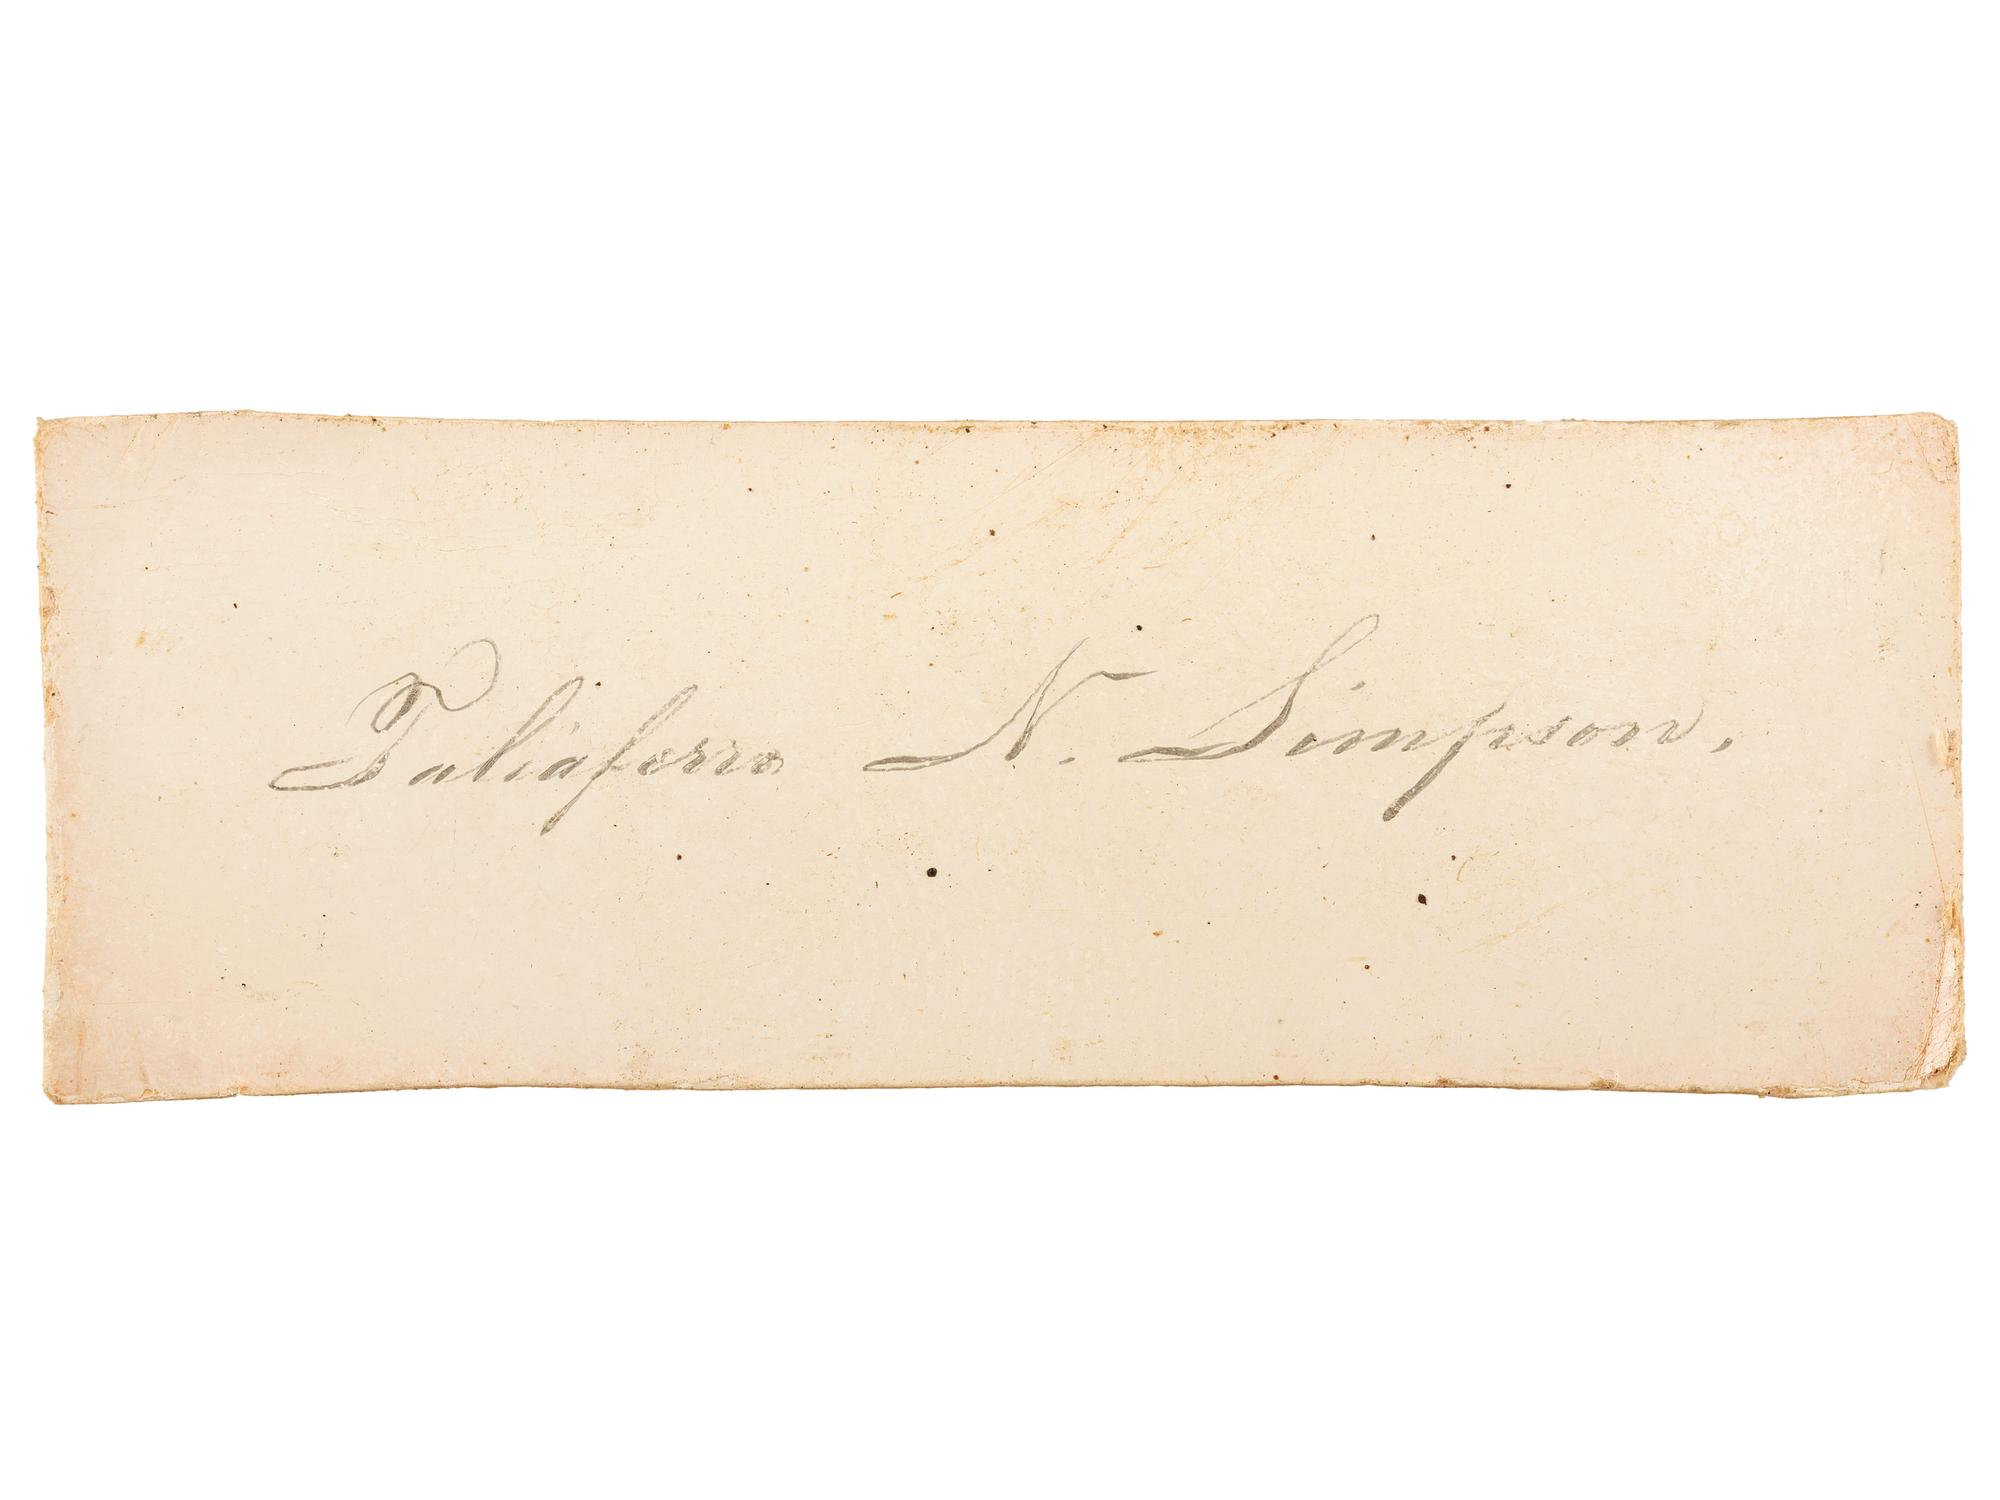 Taliaferro N. Simpson,